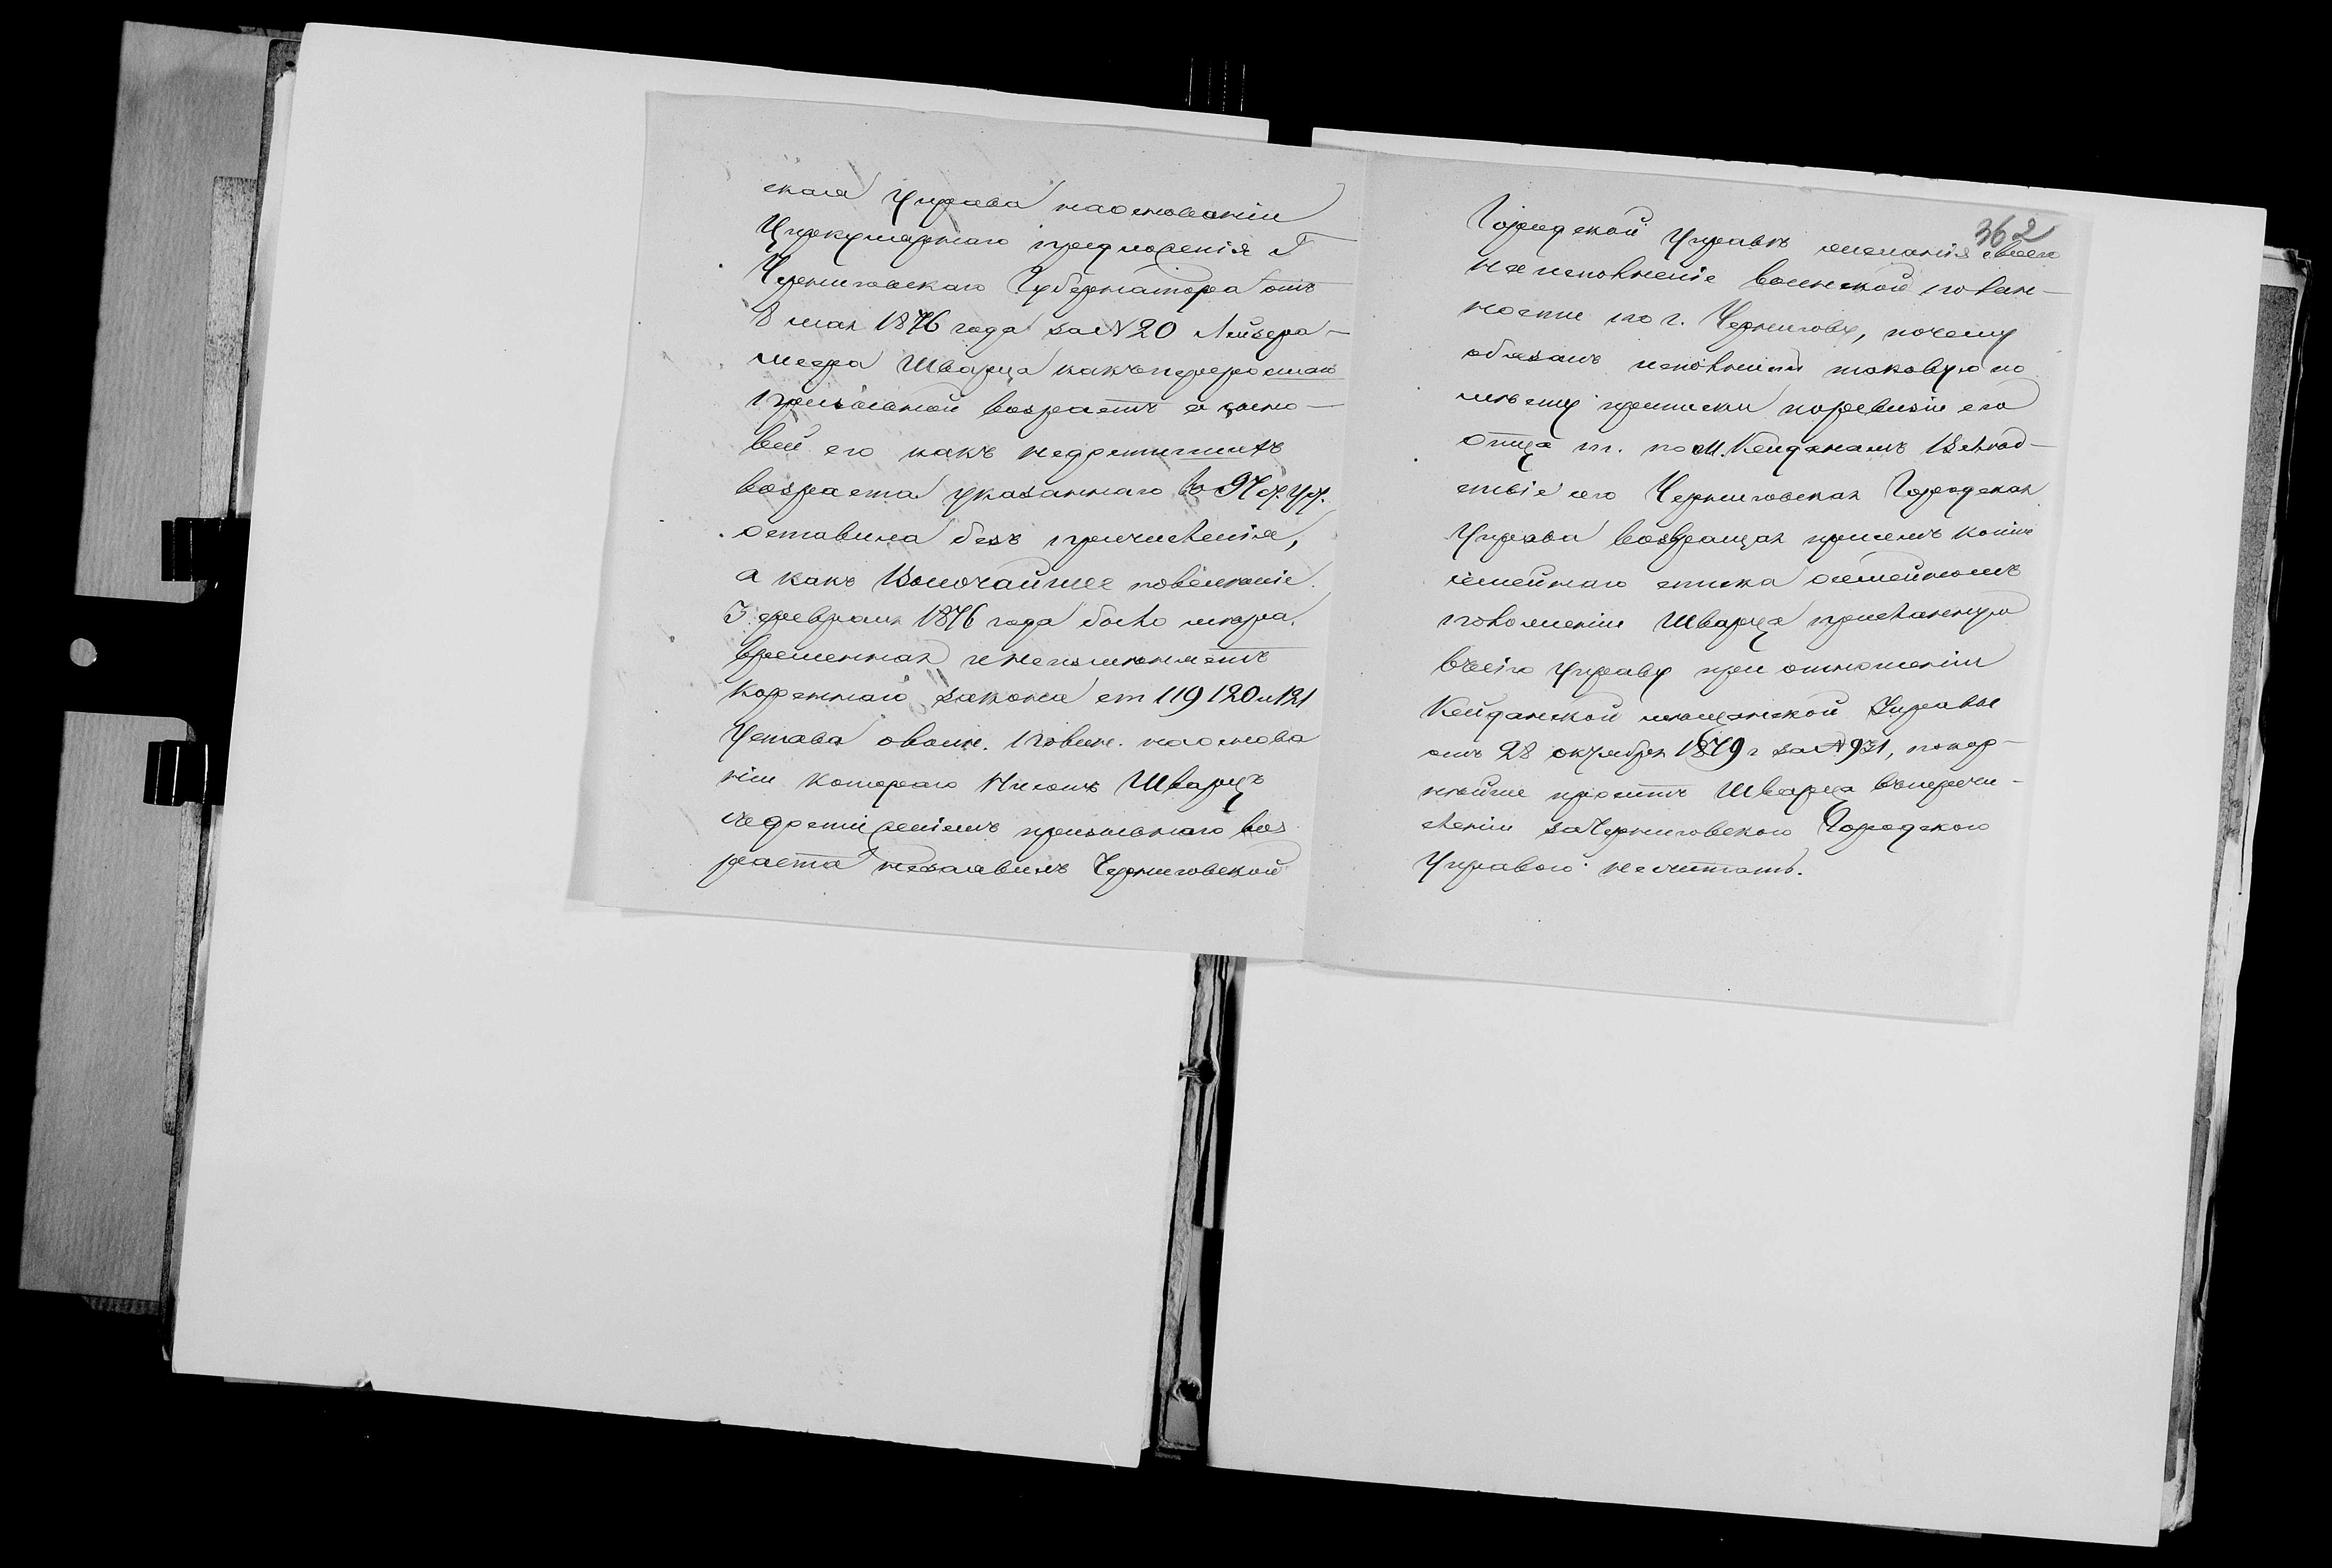 ская Управа на основаніи
Циркулярнаго предложенія Г
Черниговскаго Губернатора отъ
8 мая 1876 года за № 20 Лейзера-
Меера Шварца какъ перерослаго
призывной возрастъ а сыно-
вей его какъ недостигшихъ
возраста указаннаго въ 97 ст. Уст.
оставила безъ причисленія,
а какъ Высочайшее повеленіе
3 февраля 1876 года было мѣра
временная и не изменяетъ
кореннаго закона ст 119 120 и 121
Устава о воин. повин. на основа
ніи котораго Шварцъ
съ достиженіемъ призывнаго воз
раста не заявилъ Черниговской
362
Городской Управѣ желанія своего
на исполненіе воинской повин-
ности по г. Чернигову, почему
обязанъ исполнить таковую по
мѣсту приписки по ревизіи его
отца т. по М. Кейданамъ Вслѣд-
ствіе чего Черниговская Городская
Управа возвращая присемъ копію
семейнаго списка о семейномъ
положеніи Шварца присланную
въ сію Управу при отношеніи
Кейданской мѣщанской Управы
отъ 28 октября 1879 г за № 931, покор-
нѣйше проситъ Шварца въ перечи-
сленіи за Черниговскою Городскою
Управою не считать.